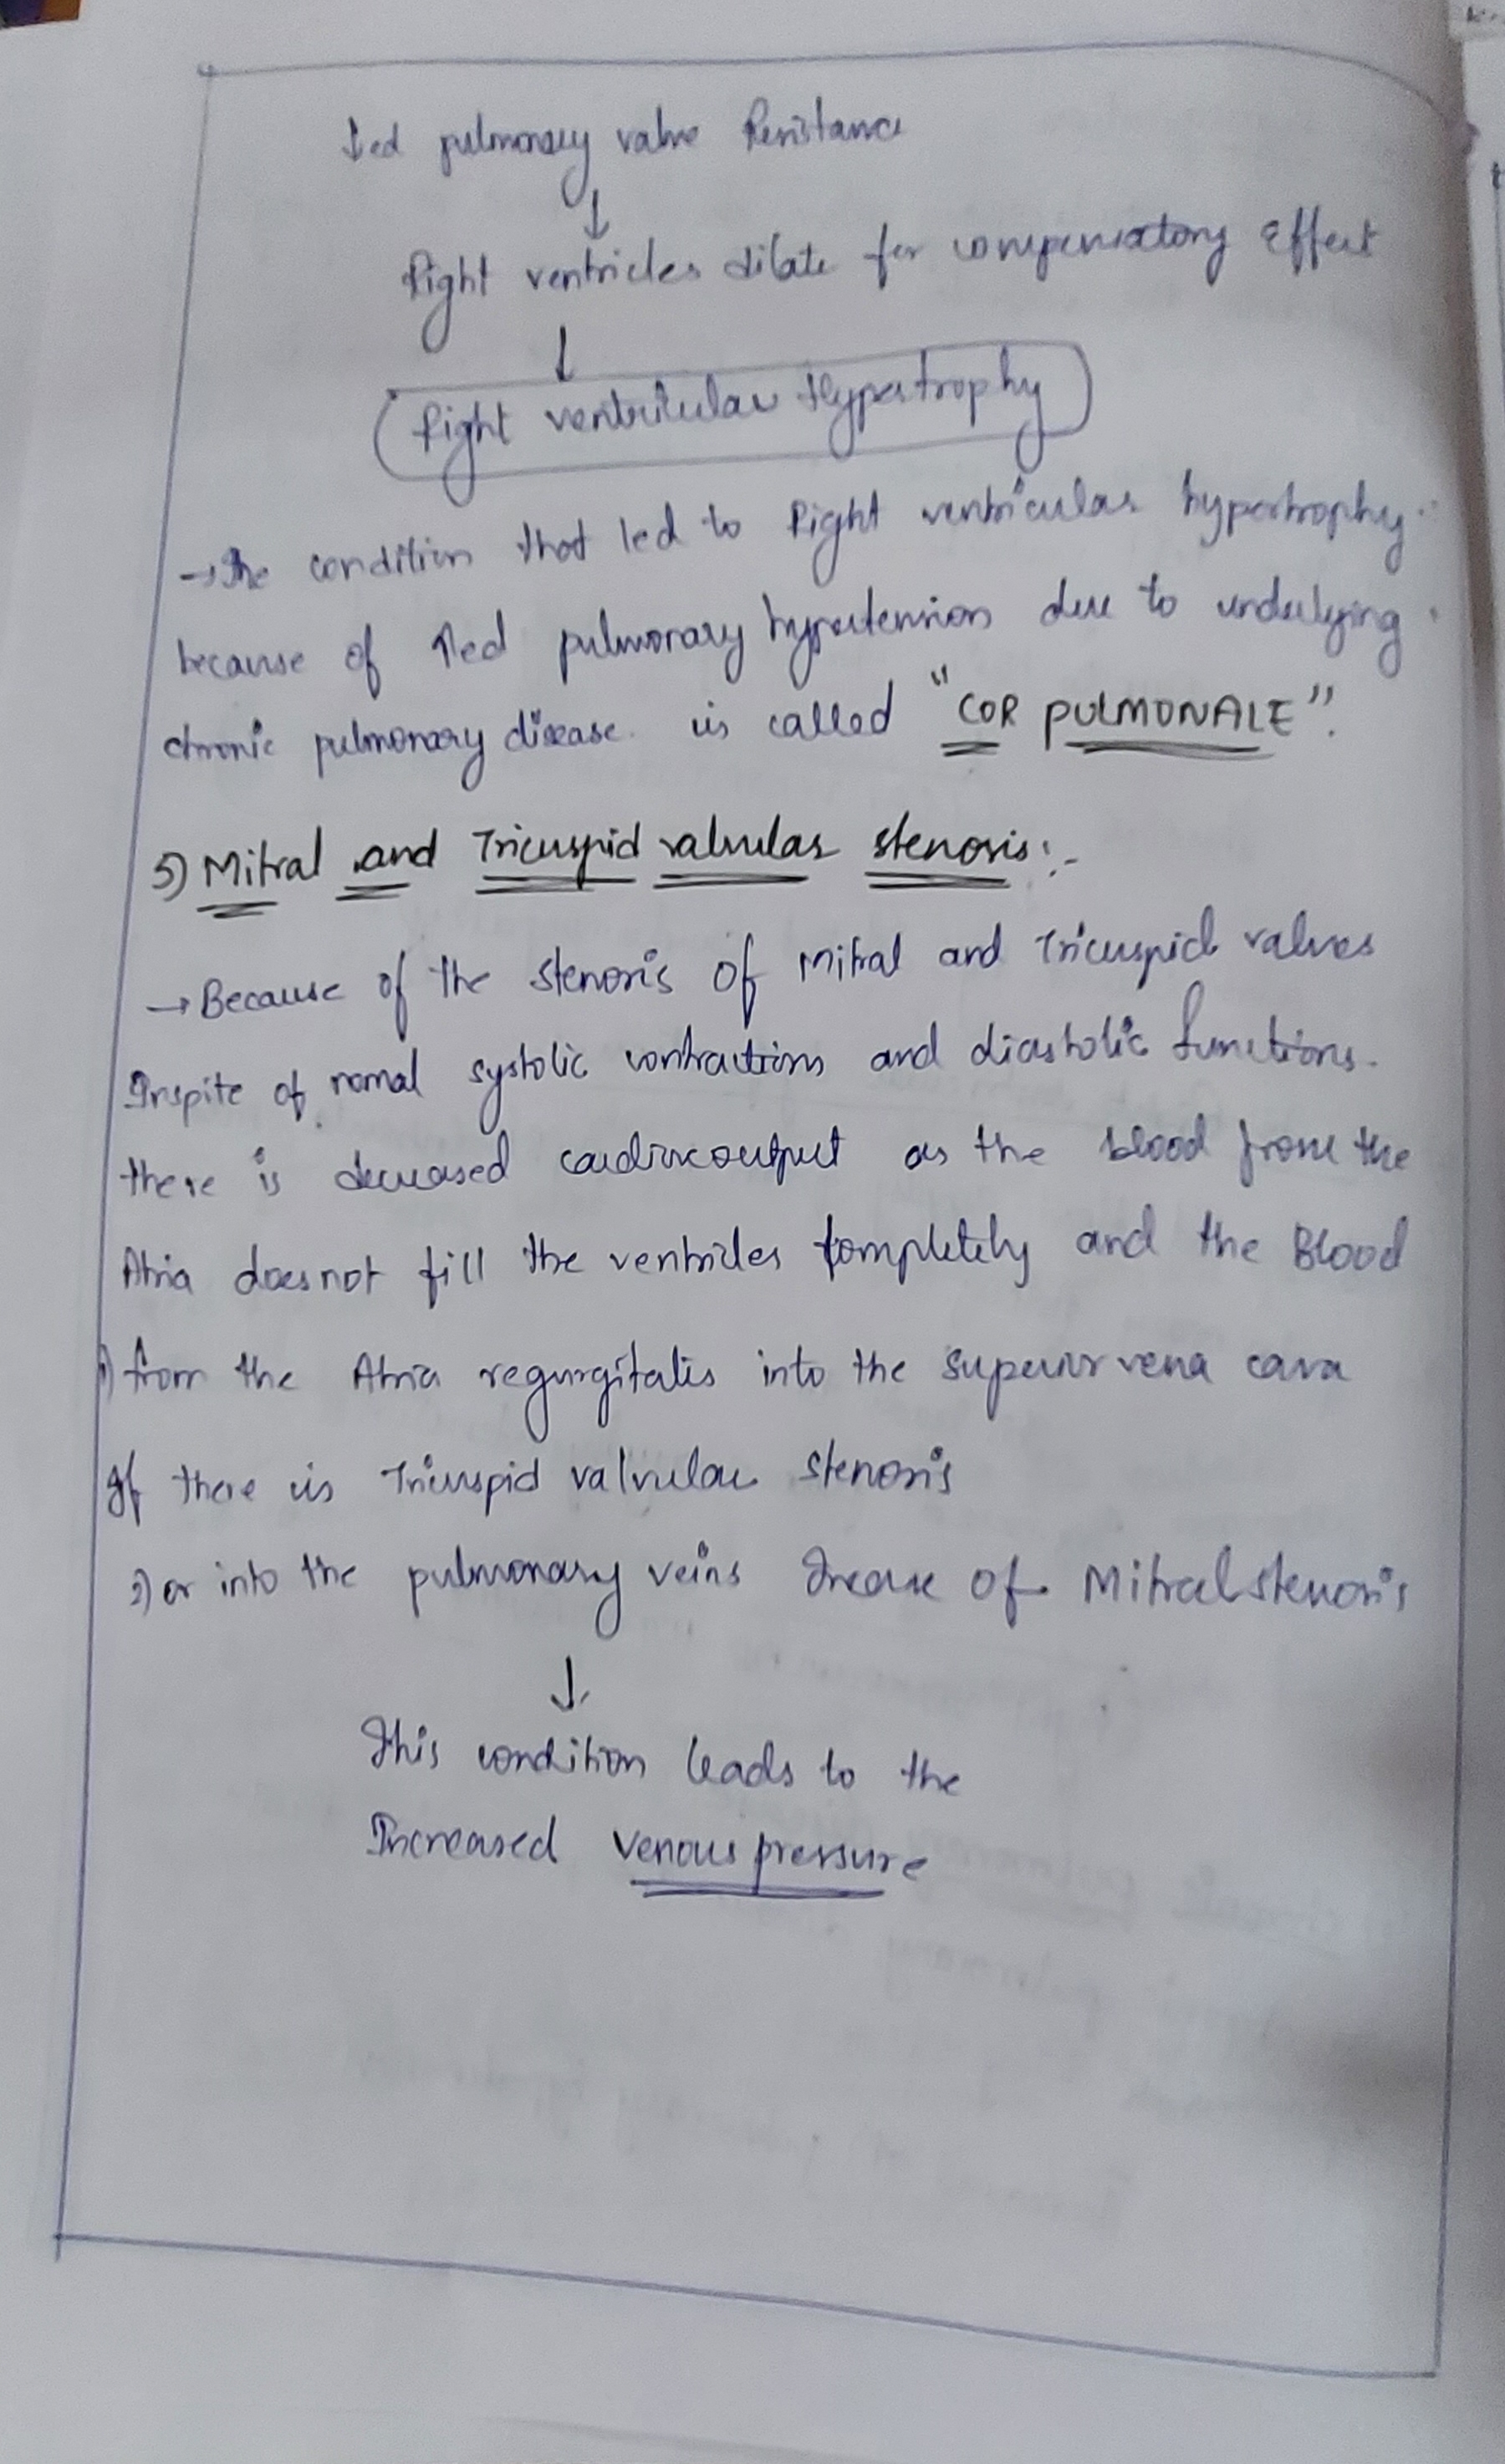 ↓ed pulmonary valve Resistance
↓
Right ventricles dilate for compensatory Effect
↓
Right ventricular Hypertrophy
→ The condition that led to Right ventricular hypertrophy
because of ↑ed pulmonary hypertension due to underlying
chronic pulmonary disease. is called "COR PULMONALE".
5) Mitral and Tricuspid valvular stenosis:-
→ Because of the stenosis of Mitral and Tricuspid valves
Inspite of normal systolic contractions and diastolic functions.
there is decreased cardiacoutput as the blood from the
Atria doesnot fill the ventricles completely and the Blood
1) from the Atria regurgitatis into the superior vena cava
If there is Tricuspid valvular stenosis
2) or into the pulmonary veins Incase of Mitral stenosis
↓
This condition leads to the
Increased venous pressure